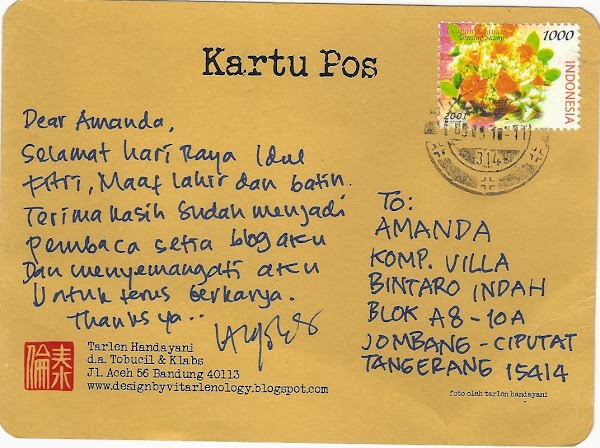 Kartu Pos
1000
INDONESIA
2001
Dear Amanda,
Selamat Hari Raya Idul
Fitri, Maaf lahir dan batin.
Terima kasih sudah menjadi
pembaca setia blog aku
Dan menyemangati aku
Untuk terus berkarya.
Thanks ya..
To:
AMANDA
KOMP. VILLA
BINTARO INDAH
BLOK A8-10A
JOMBANG - CIPUTAT
TANGERANG 15414
倫泰
Tarlen Handayani
d.a. Tobucil & Klabs
Jl. Aceh 56 Bandung 40113
www.designbyvitarlenology.blogspot.com
foto oleh tarlen handayani